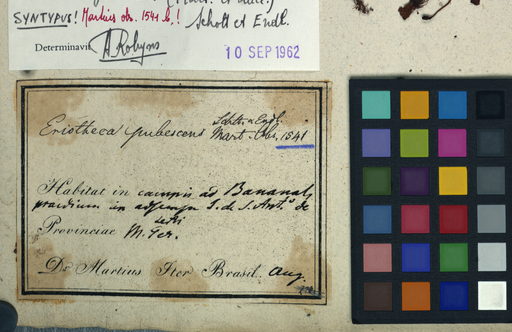 SYNTYPUS! Martius obs. 1541 b.! Schott et Endl.
Determinavit A Robyns
10 SEP 1962
Eriotheca pubescens Schtt. & Endl.
Mart. Obs. 1541
Habitat in campis ad Bananal,
praedium in
Provinciae M. Ger.
Dr. Martius Iter Brasil. Aug.